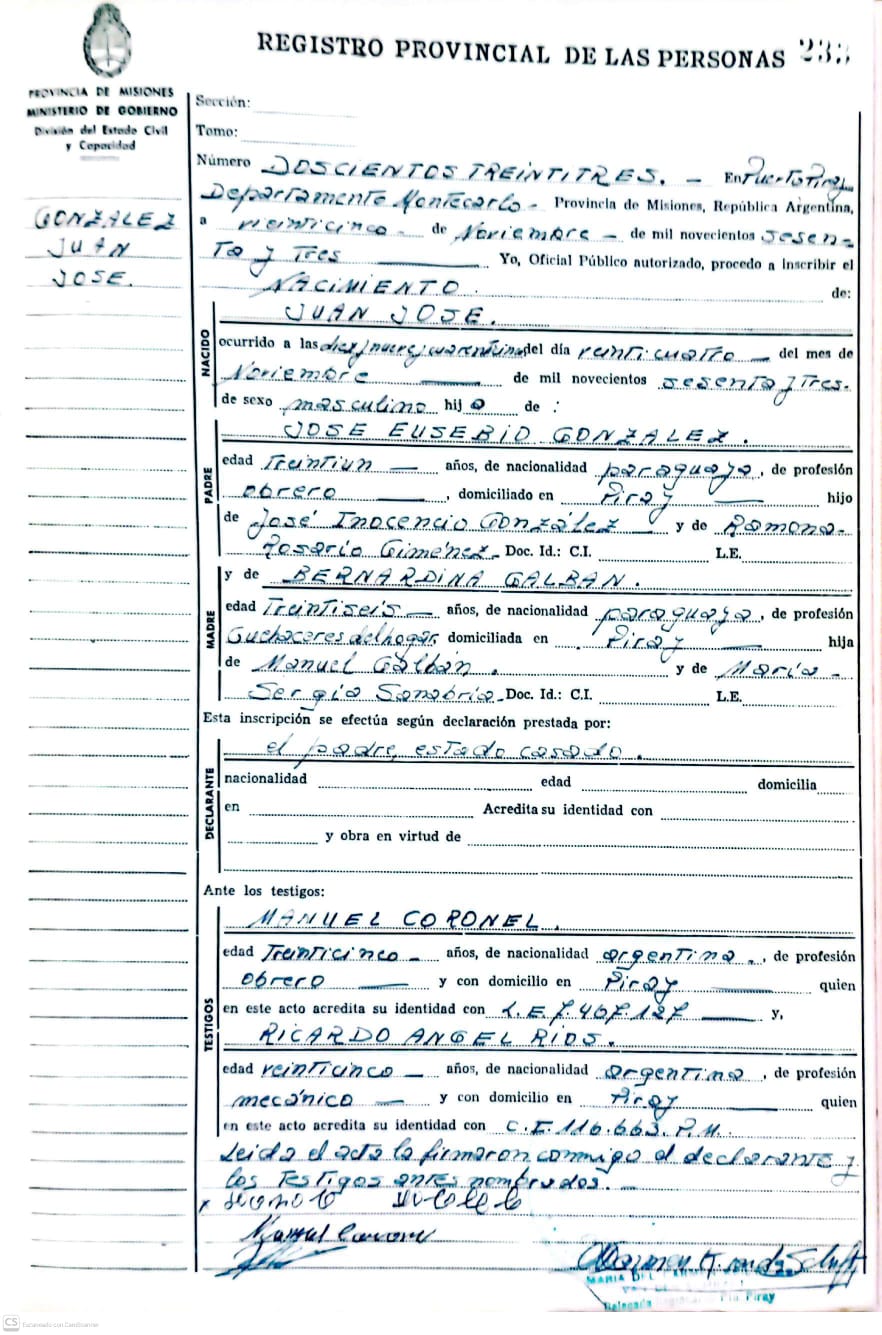 REGISTRO PROVINCIAL DE LAS PERSONAS 233
PROVINCIA DE MISIONES
MINISTERIO DE GOBIERNO
División del Estado Civil
y Capacidad
GONZALEZ
JUAN
JOSE.
Sección:
Tomo:
Número DOSCIENTOS TREINTITRES. — En Puerto Piray
Departamento Montecarlo - Provincia de Misiones, República Argentina,
a veinticinco - de Noviembre - de mil novecientos sesen-
ta y Tres — Yo, Oficial Público autorizado, procedo a inscribir el
NACIMIENTO. de:
NACIDO
JUAN JOSE.
ocurrido a las diez y nueve y cuarenticinco del día veinticuatro — del mes de
Noviembre — de mil novecientos sesenta y Tres.
de sexo masculino hijo de :
PADRE
JOSE EUSEBIO GONZALEZ.
edad Treintiun — años, de nacionalidad paraguaya, de profesión
obrero —, domiciliado en Piray — hijo
de José Inocencio González — y de Ramona-
Rosario Giménez. Doc. Id.: C.I. L.E.
MADRE
y de BERNARDINA GALBAN.
edad Treintiseis — años, de nacionalidad paraguaya, de profesión
Quehaceres del hogar, domiciliada en Piray — hija
de Manuel Galbán. y de María -
Sergia Sanabria. Doc. Id.: C.I. L.E.
Esta inscripción se efectúa según declaración prestada por:
DECLARANTE
el padre, estado casado.
nacionalidad edad domicilia
en Acredita su identidad con
y obra en virtud de
Ante los testigos:
TESTIGOS
MANUEL CORONEL.
edad Treinticinco - años, de nacionalidad argentina., de profesión
obrero — y con domicilio en Piray — quien
en este acto acredita su identidad con L.E.7.467.127 — y,
RICARDO ANGEL RIOS.
edad veinticinco — años, de nacionalidad argentina, de profesión
mecánico — y con domicilio en Piray — quien
en este acto acredita su identidad con C.I.116.663.P.M.
Leida el acta la firmaron conmigo el declarante y
los Testigos antes nombrados. —
Manuel Coronel
MARIA DEL
Delegada Piray
CS Escaneado con CamScanner